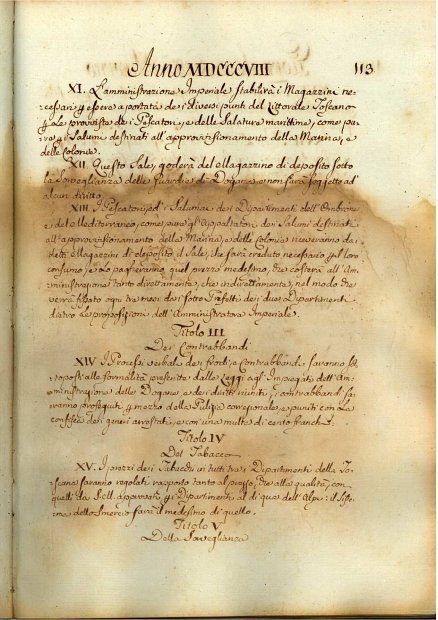 Anno MDCCCVIII 113
XI. L'amministrazione Imperiale stabilirà i Magazzini ne-
cessarj per essere a portata dei diversi punti del Littorale Toscano
per le provviste dei Pescatori, e delle Salature marittime, come pu-
re per i Salumi destinati all'approvvisionamento della Marina, e
delle Colonie.
XII. Questo Sale, goderà del Magazzino di deposito sotto
la sorveglianza delle Guardie di Dogana, e non sarà soggetto ad
alcun diritto.
XIII. I Pescatori, ed i Salumai dei Dipartimenti dell'Ombrone,
e del Mediterraneo, come pure gl'Appaltatori dei Salumi destinati
all'approvvisionamento della Marina, e delle Colonie riceveranno da
detti Magazzini di deposito il Sale, che sarà creduto necessario per il loro
consumo, e lo pagheranno quel prezzo medesimo, che costerà all'Am-
ministrazione tanto direttamente, che indirettamente, nel modo che
verrà fissato ogni tre mesi dei sotto Prefetti dei due Dipartimenti
dietro le proposizioni dell'Amministratore Imperiale.
Titolo III
Dei Contrabbandi
XIV I Processi verbali dei frodi, e Contrabbandi saranno sot-
toposti alle formalità prescritte dalle Leggi agl'Impiegati dell'Am-
ministrazione delle Dogane, e dei diritti riuniti, i contrabbandi sa-
ranno proseguiti per mezzo della Pulizia correzionale, e puniti con la
confisca dei generi arrestati, e con una multa di cento franchi.
Titolo IV
Del Tabacco
XV. I prezzi dei Tabacchi in tutti tre i Dipartimenti della To-
scana saranno regolati rapporto tanto al prezzo, che alla qualità, con
quelli da approvati per i Dipartimenti al di qua dell'Alpi: il siste-
ma dello Smercio sarà il medesimo di quello.
Titolo V
Della Sorveglianza